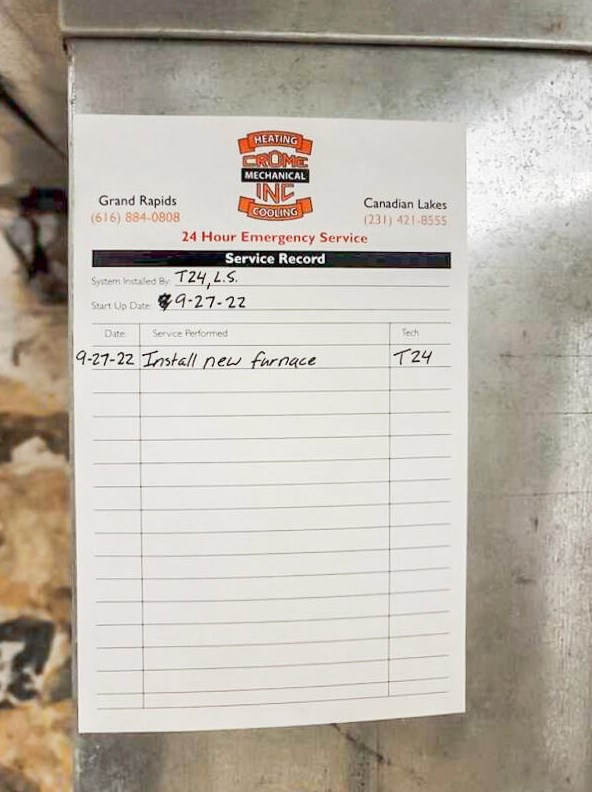 HEATING
CROME
MECHANICAL
INC
COOLING
Grand Rapids
(616) 884-0808
Canadian Lakes
(231) 421-8555
24 Hour Emergency Service
Service Record
System Installed By: T24, L.S.
Start Up Date: 9-27-22
Date Service Performed Tech
9-27-22 Install new furnace T24